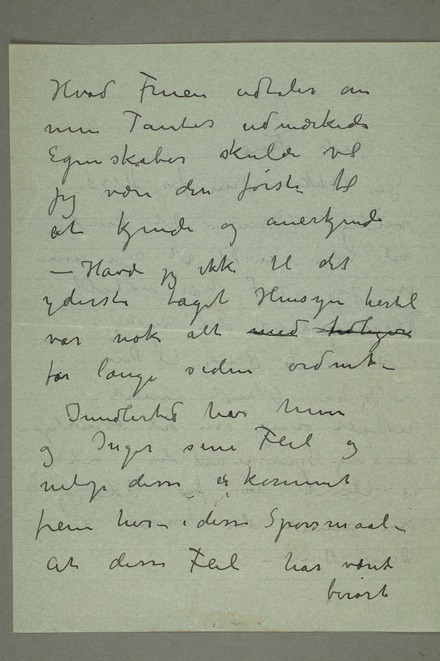 Hvad Fruen udtaler om
min Tantes udmærkede
Egenskaber skulde vel
jeg være den første til
at kjende og anerkjende
– Havde jeg ikke til det
yderste taget Hensyn hertil
var nok alt med
for længe siden ordnet –
Imidlertid har hun
og Inger sine Feil og
netop disse er kommet
frem her – i disse Spørsmaal –
At disse Feil har været
berørt